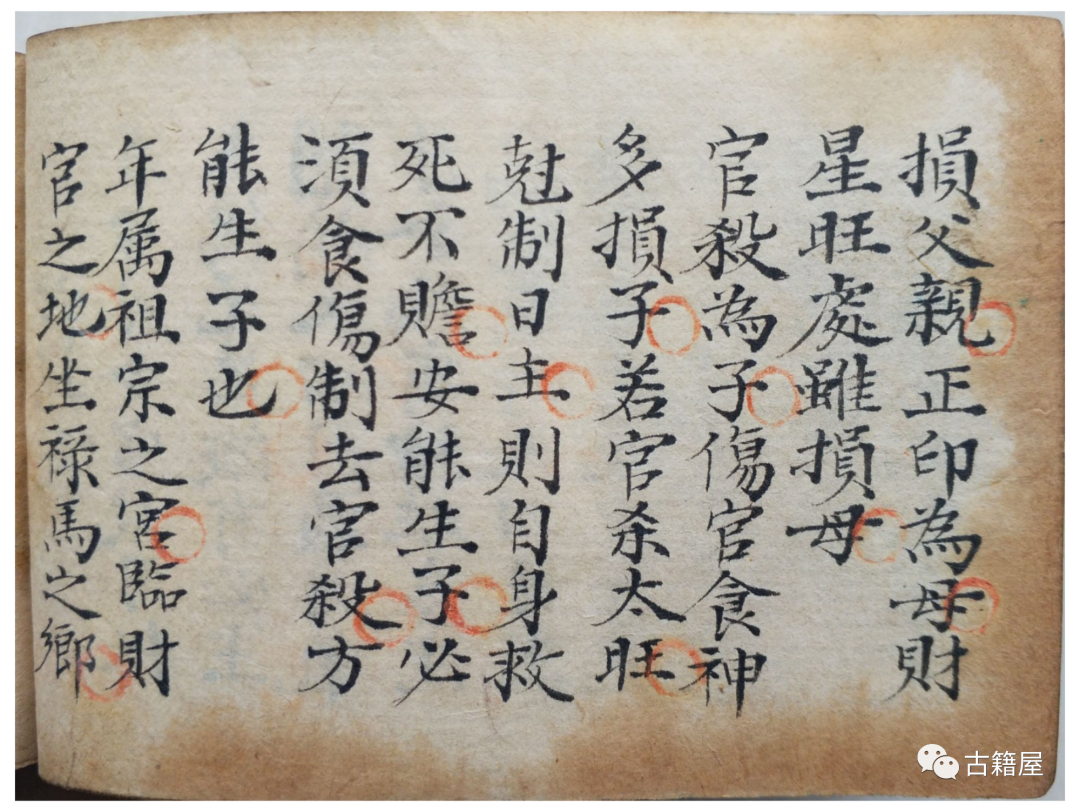 損父親正印為母財
星旺處雖損母
官殺為子傷官食神
多損子若官杀太旺
尅制日主則自身救
死不贍安能生子必
須食傷制去官殺方
能生子也
年属祖宗之宮臨財
官之地坐祿馬之鄉
古籍屋